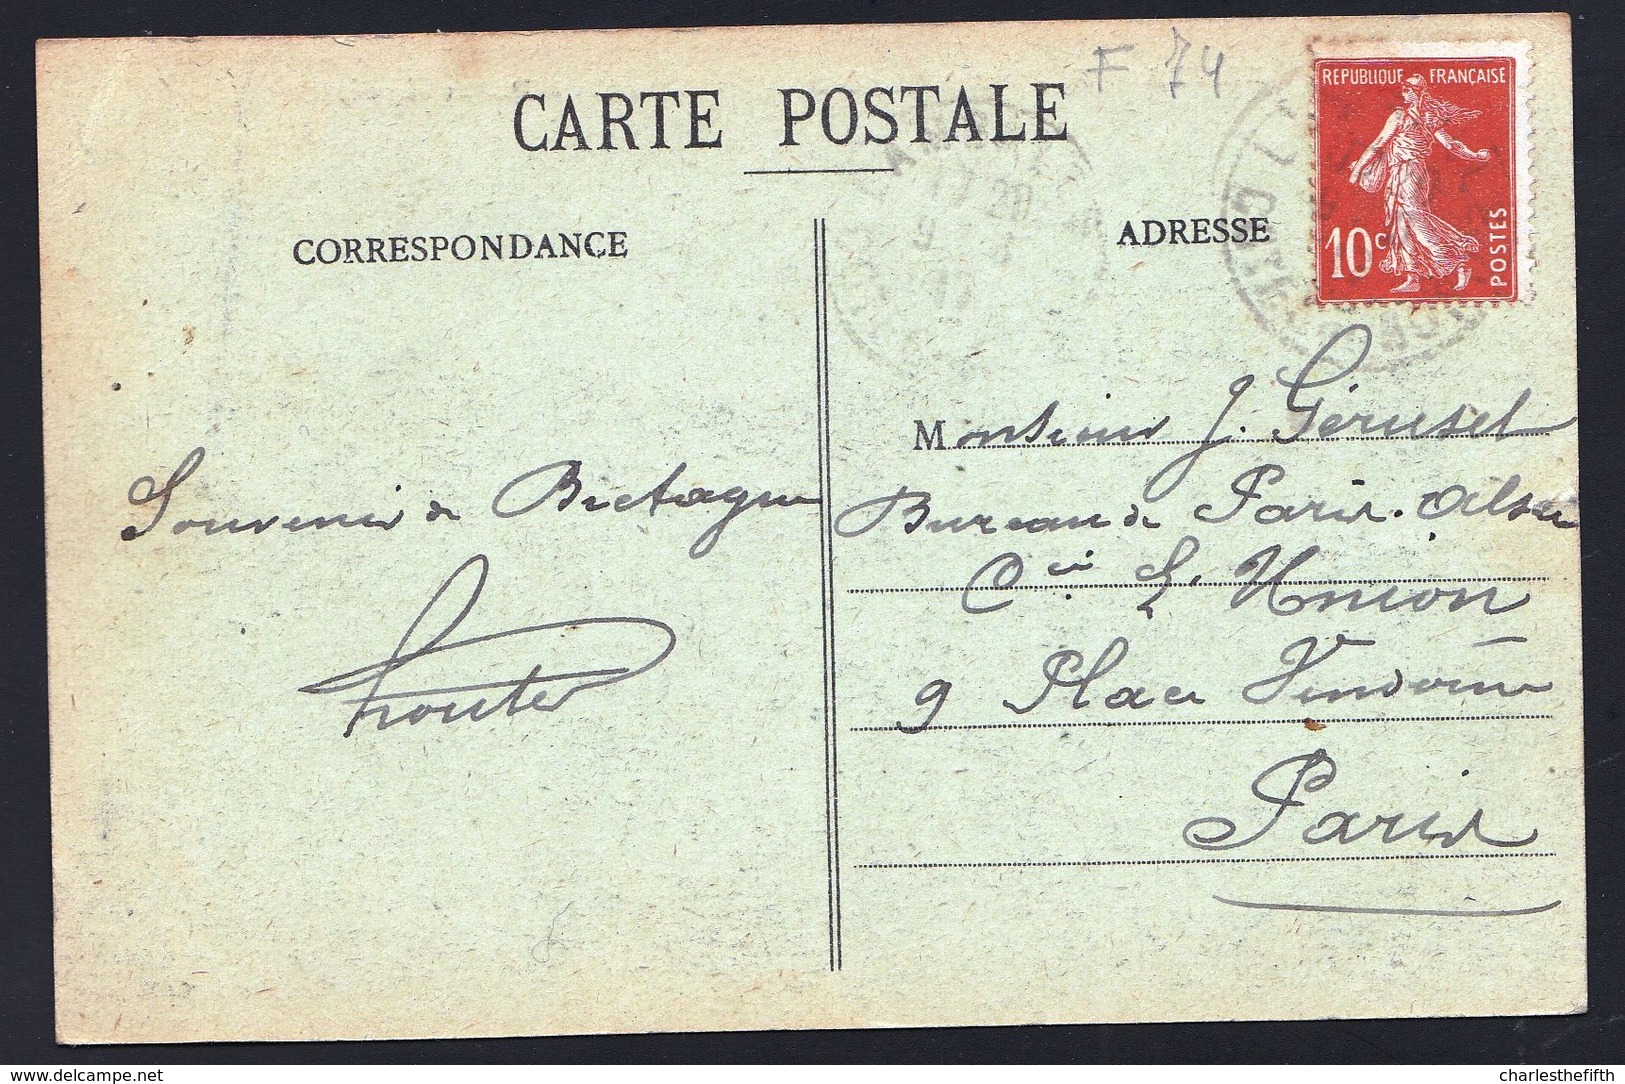 F 74
CARTE POSTALE
REPUBLIQUE FRANÇAISE
10c
POSTES
17 20
CORRESPONDANCE
ADRESSE
Souvenir de Bretagne
Monsieur J. Géruset
Bureau de Paris.
Cie L'Union
9 Place Vendôme
Paris
delcampe.net
charlesthefifth